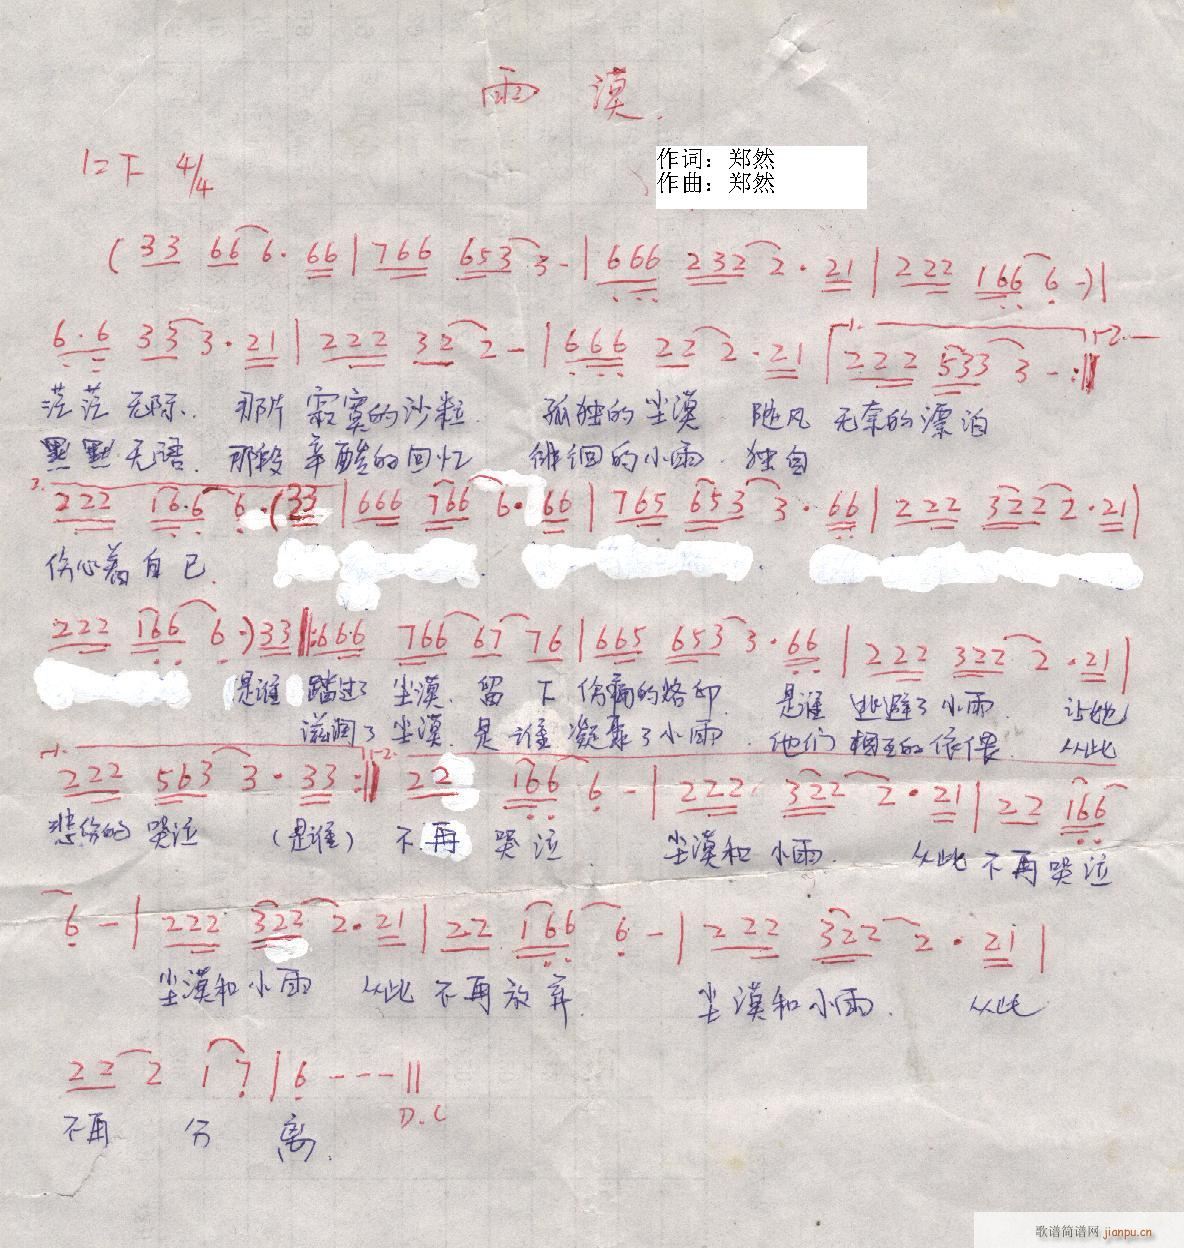 雨漠.
1=下 4/4
作词：郑然
作曲：郑然
( 33 66 6· 66 | 766 653 3 - | 666 232 2· 21 | 222 166 6 -) |
6·6 33 3· 21 | 222 32 2 - | 666 22 2· 21 | 1. 222 533 3 - :| 2.
茫茫无际. 那片寂寞的沙粒. 孤独的尘漠 随风无奈的漂泊
默默无语. 那段辛酸的回忆 徘徊的小雨. 独自
222 16·6 6· (33 | 666 766 6· 66 | 765 653 3· 66 | 222 322 2· 21 |
伤心着自己.
222 166 6·) 33 |: 6·6·6 766 67 76 | 665 653 3· 66 | 222 322 2· 21 |
是谁 踏过了尘漠. 留下伤痛的烙印. 是谁逃避了小雨 让她
滋润了尘漠. 是谁凝聚了小雨. 他们相互的依偎. 从此
1. 222 563 3· 33 :| 2. 22 166 6 - | 222 322 2· 21 | 22 166
悲伤的哭泣 (是谁) 不再哭泣. 尘漠和小雨. 从此不再哭泣
6 - | 222 322 2· 21 | 22 166 6 - | 222 322 2· 21 |
尘漠和小雨 从此不再放弃. 尘漠和小雨. 从此
22 2 1 7 | 6 - - - ||
D.C
不再 分 离.
歌谱简谱网 jianpu.cn